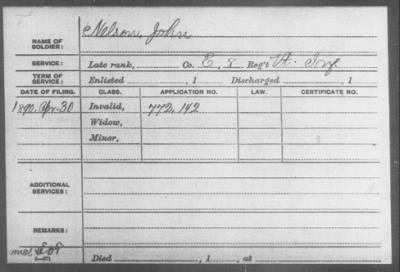 NAME OF SOLDIER: Nelson, John
SERVICE: Late rank, Co. E, 8 Reg't Vt. Inf
TERM OF SERVICE: Enlisted , 1 Discharged , 1
DATE OF FILING. CLASS. APPLICATION NO. LAW. CERTIFICATE NO.
1890, Apr. 30 Invalid, 772,142
Widow,
Minor,
ADDITIONAL SERVICES:
REMARKS:
Died , 1 , at